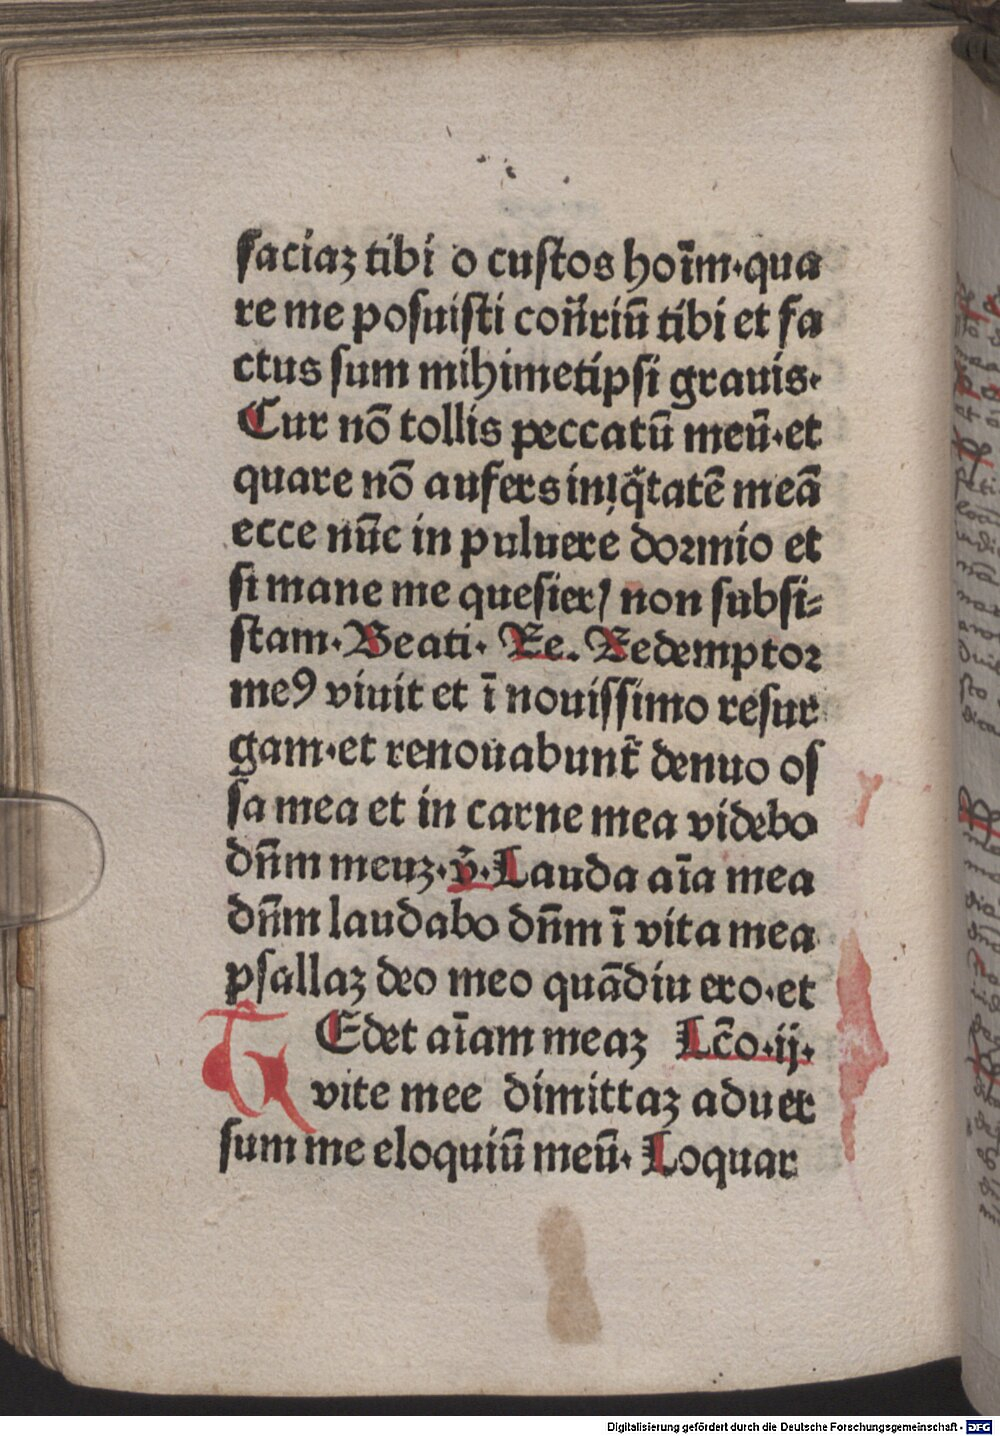 faciaz tibi o custos hoīm·qua
re me posuisti cōn̄riū tibi et fa
ctus sum mihimetipsi grauis·
Cur nō tollis peccatū meū·et
quare nō aufers iniq̄tatē meā
ecce nūc in puluere dormio et
si mane me quesier/ non subsi=
stam·Beati· Re. Redemptor
meꝰ viuit et ī nouissimo resur
gam·et renouabunt̄ denuo os
sa mea et in carne mea videbo
dn̄m meuz·v̄·Lauda aīa mea
dn̄m laudabo dn̄m ī vita mea
psallaz deo meo quādiu ero·et
TEdet aīam meaz Lc̄o·ij·
vite mee dimittaz aduer
sum me eloquiū meū· Loquar
Digitalisierung gefördert durch die Deutsche Forschungsgemeinschaft - DFG